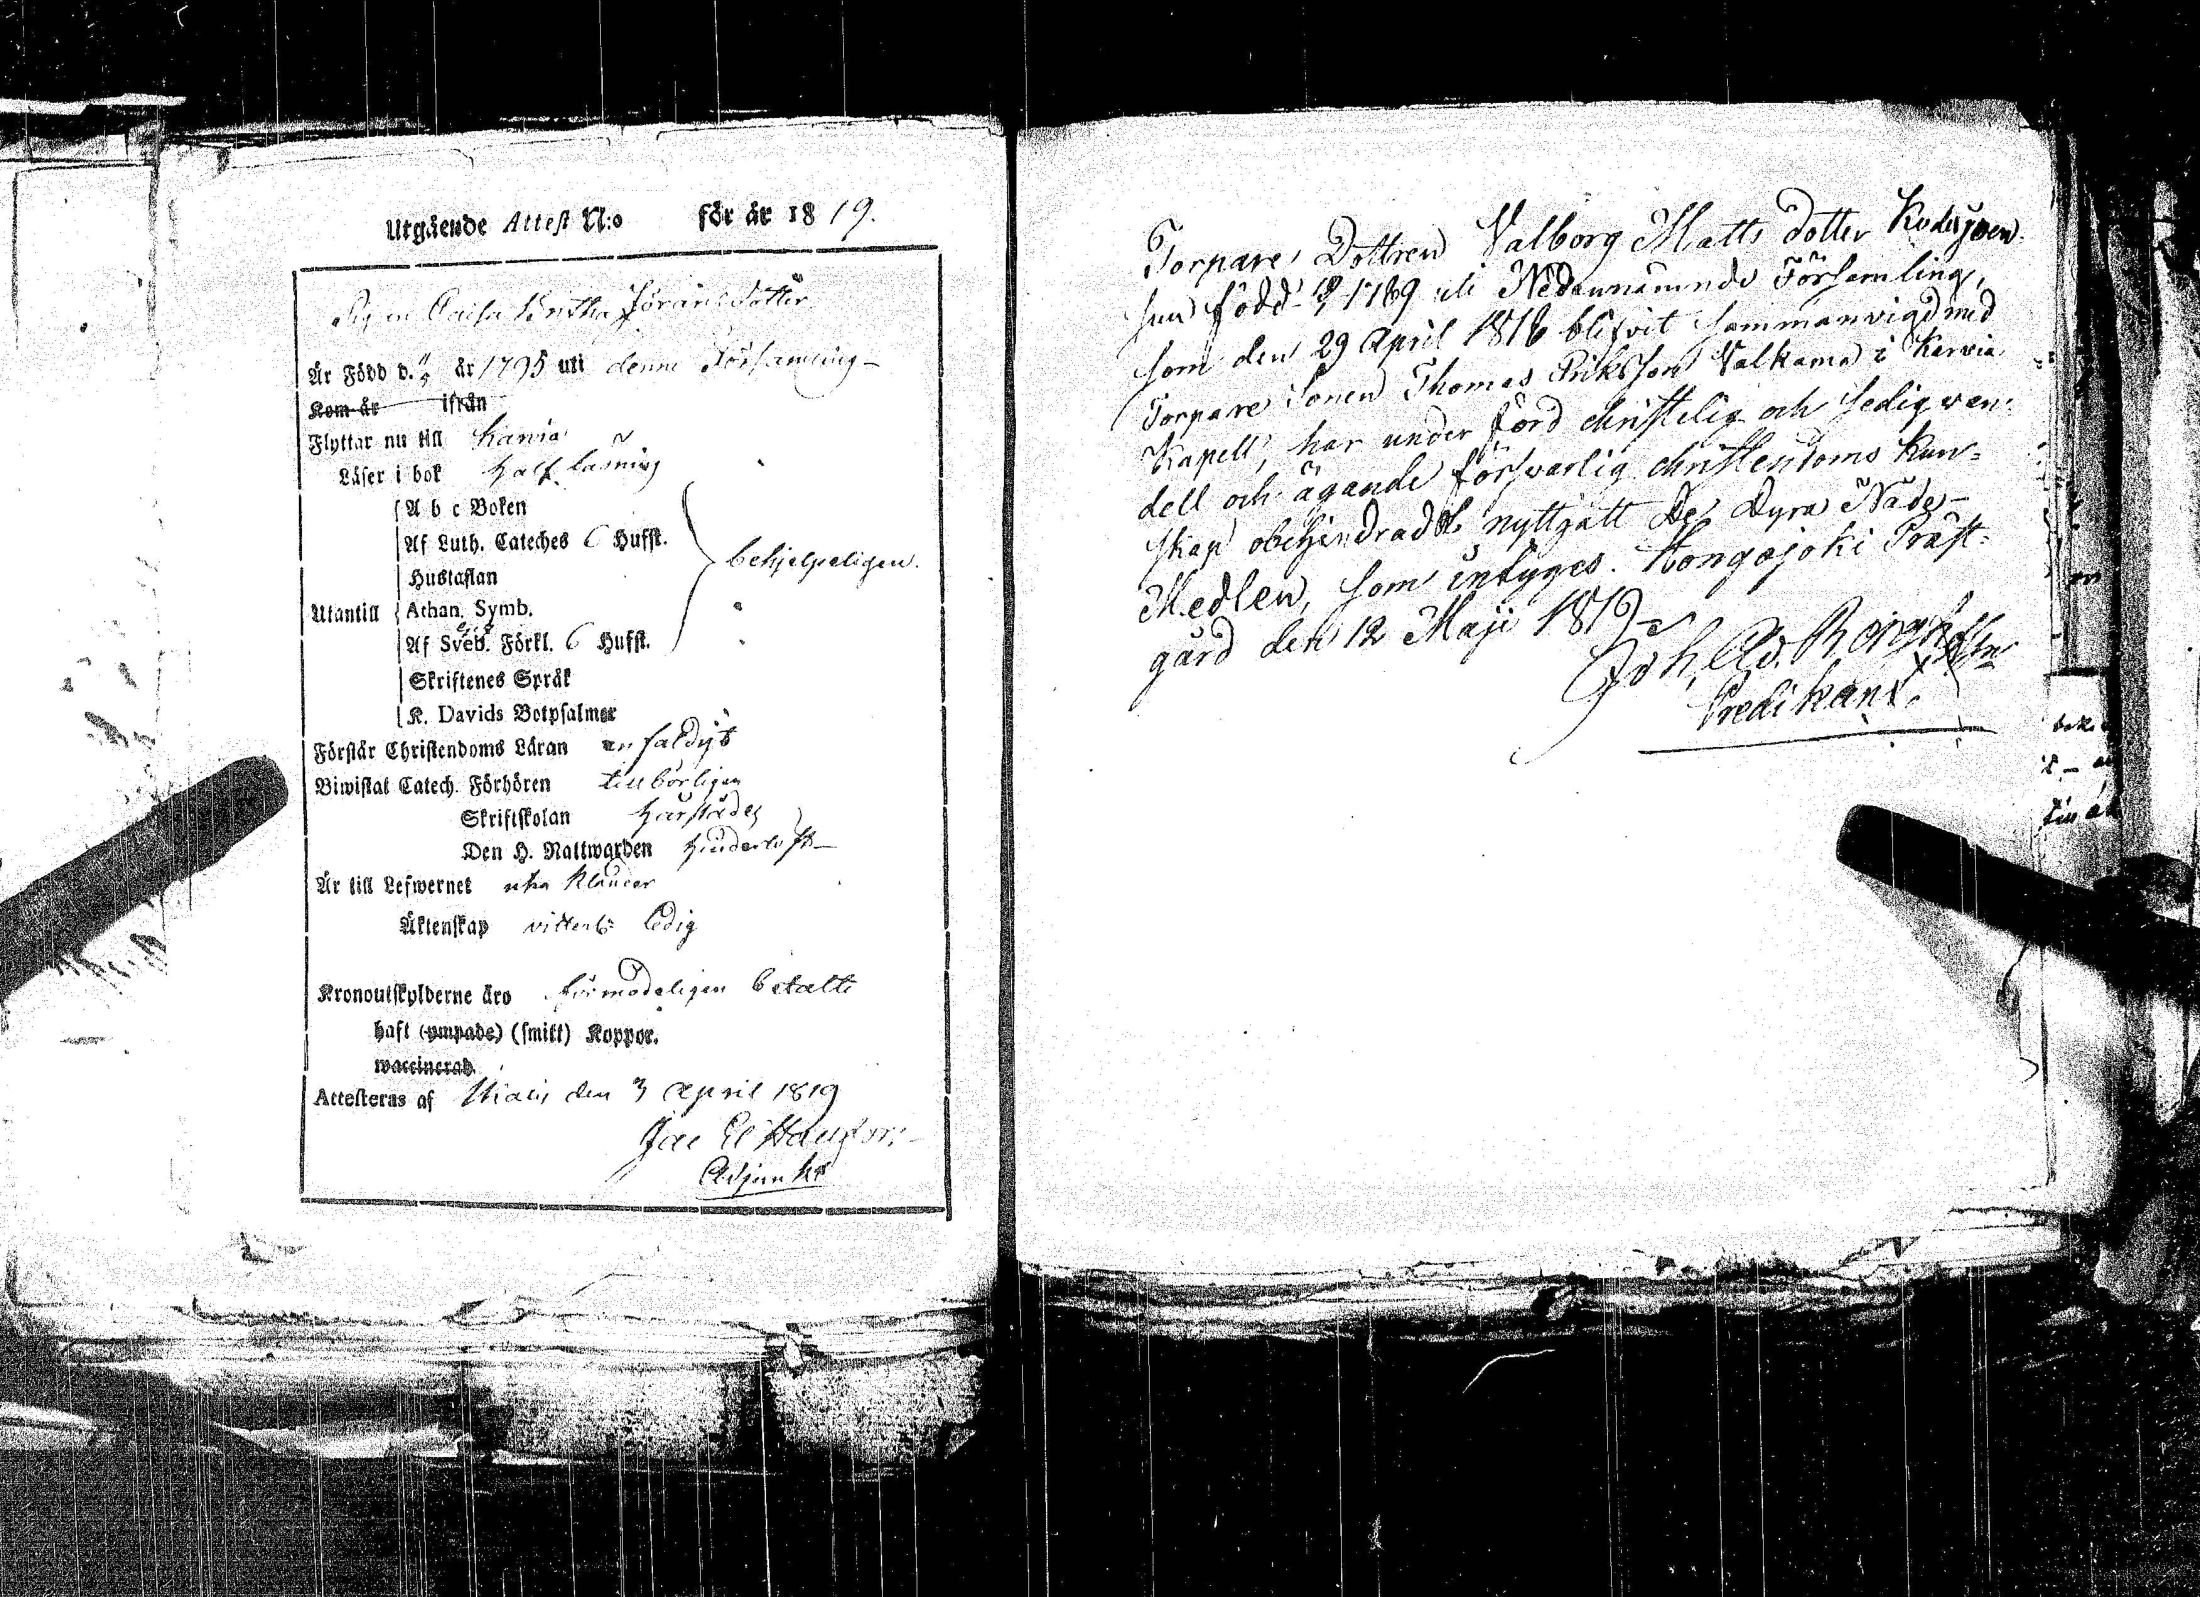 Utgående Attest N:o för år 1819.
Pigan Caisa Gretha Jörans dotter
Är Född d. år 1795 uti denne Församling –
Kom år ifrån
Flyttar nu till Karvia
Läser i bok half läsning
A b c Boken
Af Luth. Cateches 6 Hufst.
Hustaflan
behjelpeligen.
Utantill Athan. Symb.
Af Sveb. Förkl. 6 Hufst.
Skriftenes Språk
K. Davids Botpsalmer
Förstår Christendoms Läran enfaldigt
Biwistat Catech. Förhören tillbörligen
Skriftskolan härstädes
Den H. Nattwarden hinderlöst –
Är till Lefwernet utan klander
Äktenskap vitterl: ledig
Kronoutskylderne äro förmodeligen betalte
haft (ympade) (smitt) Koppor.
waccinerad.
Attesteras af den 3 April 1819
Jac
Adjunkt
Torpare Dottren Valborg Matts dotter
född 1789 uti Nedannämnde Församling,
som den 29 April 1816 blifvit sammanvigd med
Torpare Sonen Thomas Eriksson Valkama i Karvia
Kapell, har under förd christelig och sedig wan-
dell och ägande försvarlig christendoms kun-
skap obehindradt nyttjatt De Dyra Nåde-
Medlen, som intygas. Hongojoki Präst-
gård den 12 Maji 1819
Joh. Ad.
Predikant.